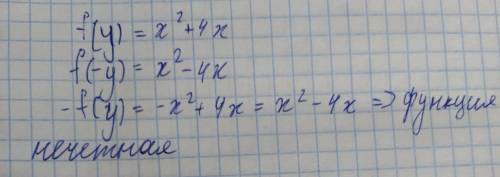 f(y) = x² + 4x
f(-y) = x² - 4x
-f(y) = -x² + 4x = x² - 4x => функция
нечетная